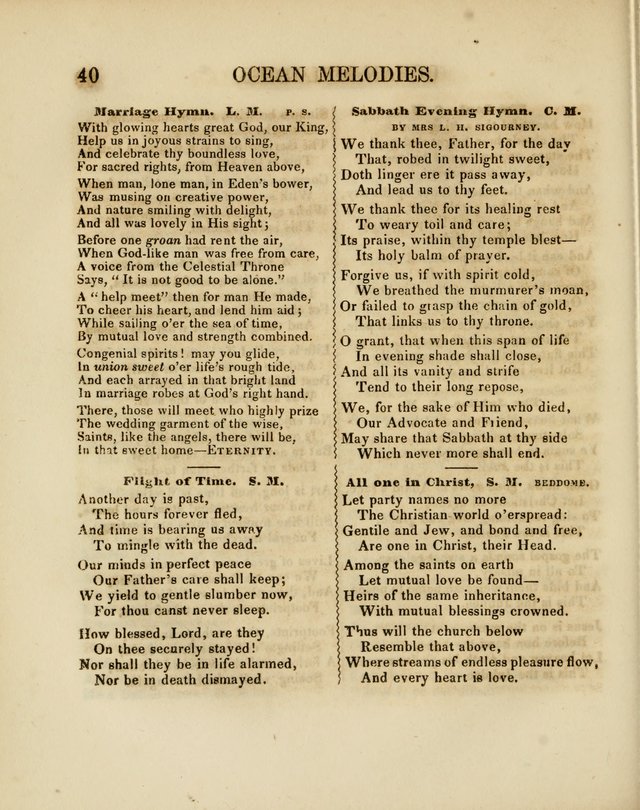 40
OCEAN MELODIES.
Marriage Hymn. L. M. P. S.
With glowing hearts great God, our King,
Help us in joyous strains to sing,
And celebrate thy boundless love,
For sacred rights, from Heaven above,
When man, lone man, in Eden's bower,
Was musing on creative power,
And nature smiling with delight,
And all was lovely in His sight;
Before one groan had rent the air,
When God-like man was free from care,
A voice from the Celestial Throne
Says, "It is not good to be alone."
A "help meet" then for man He made,
To cheer his heart, and lend him aid;
While sailing o'er the sea of time,
By mutual love and strength combined.
Congenial spirits! may you glide,
In union sweet o'er life's rough tide,
And each arrayed in that bright land
In marriage robes at God's right hand.
There, those will meet who highly prize
The wedding garment of the wise,
Saints, like the angels, there will be,
In that sweet home—ETERNITY.
Flight of Time. S. M.
Another day is past,
The hours forever fled,
And time is bearing us away
To mingle with the dead.
Our minds in perfect peace
Our Father's care shall keep;
We yield to gentle slumber now,
For thou canst never sleep.
How blessed, Lord, are they
On thee securely stayed!
Nor shall they be in life alarmed,
Nor be in death dismayed.
Sabbath Evening Hymn. C. M.
BY MRS L. H. SIGOURNEY.
We thank thee, Father, for the day
That, robed in twilight sweet,
Doth linger ere it pass away,
And lead us to thy feet.
We thank thee for its healing rest
To weary toil and care;
Its praise, within thy temple blest—
Its holy balm of prayer.
Forgive us, if with spirit cold,
We breathed the murmurer's moan,
Or failed to grasp the chain of gold,
That links us to thy throne.
O grant, that when this span of life
In evening shade shall close,
And all its vanity and strife
Tend to their long repose,
We, for the sake of Him who died,
Our Advocate and Friend,
May share that Sabbath at thy side
Which never more shall end.
All one in Christ, S. M. BEDDOME.
Let party names no more
The Christian world o'erspread:
Gentile and Jew, and bond and free,
Are one in Christ, their Head.
Among the saints on earth
Let mutual love be found—
Heirs of the same inheritance,
With mutual blessings crowned.
Thus will the church below
Resemble that above,
Where streams of endless pleasure flow,
And every heart is love.